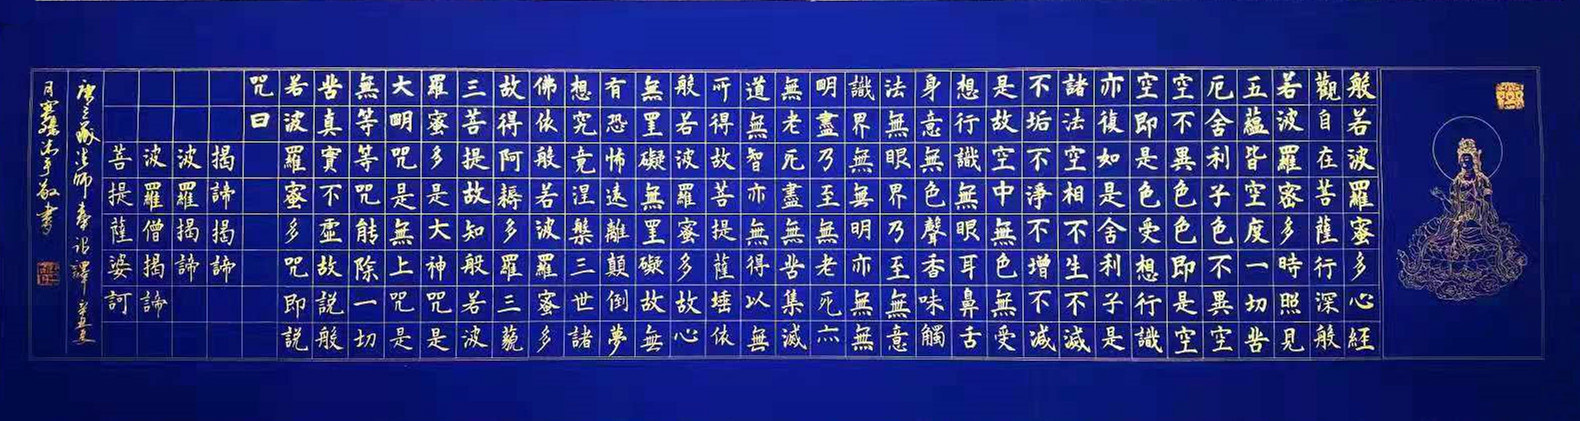 般若波羅蜜多心經
觀自在菩薩行深般
若波羅蜜多時照見
五蘊皆空度一切苦
厄舍利子色不異空
空不異色色即是空
空即是色受想行識
亦復如是舍利子是
諸法空相不生不滅
不垢不淨不增不減
是故空中無色無受
想行識無眼耳鼻舌
身意無色聲香味觸
法無眼界乃至無意
識界無無明亦無無
明盡乃至無老死亦
無老死盡無苦集滅
道無智亦無得以無
所得故菩提薩埵依
般若波羅蜜多故心
無罣礙無罣礙故無
有恐怖遠離顛倒夢
想究竟涅槃三世諸
佛依般若波羅蜜多
故得阿耨多羅三藐
三菩提故知般若波
羅蜜多是大神咒是
大明咒是無上咒是
無等等咒能除一切
苦真實不虛故說般
若波羅蜜多咒即說
咒曰
揭諦揭諦
波羅揭諦
波羅僧揭諦
菩提薩婆訶
唐三藏法師奉詔譯辛丑
月敬書